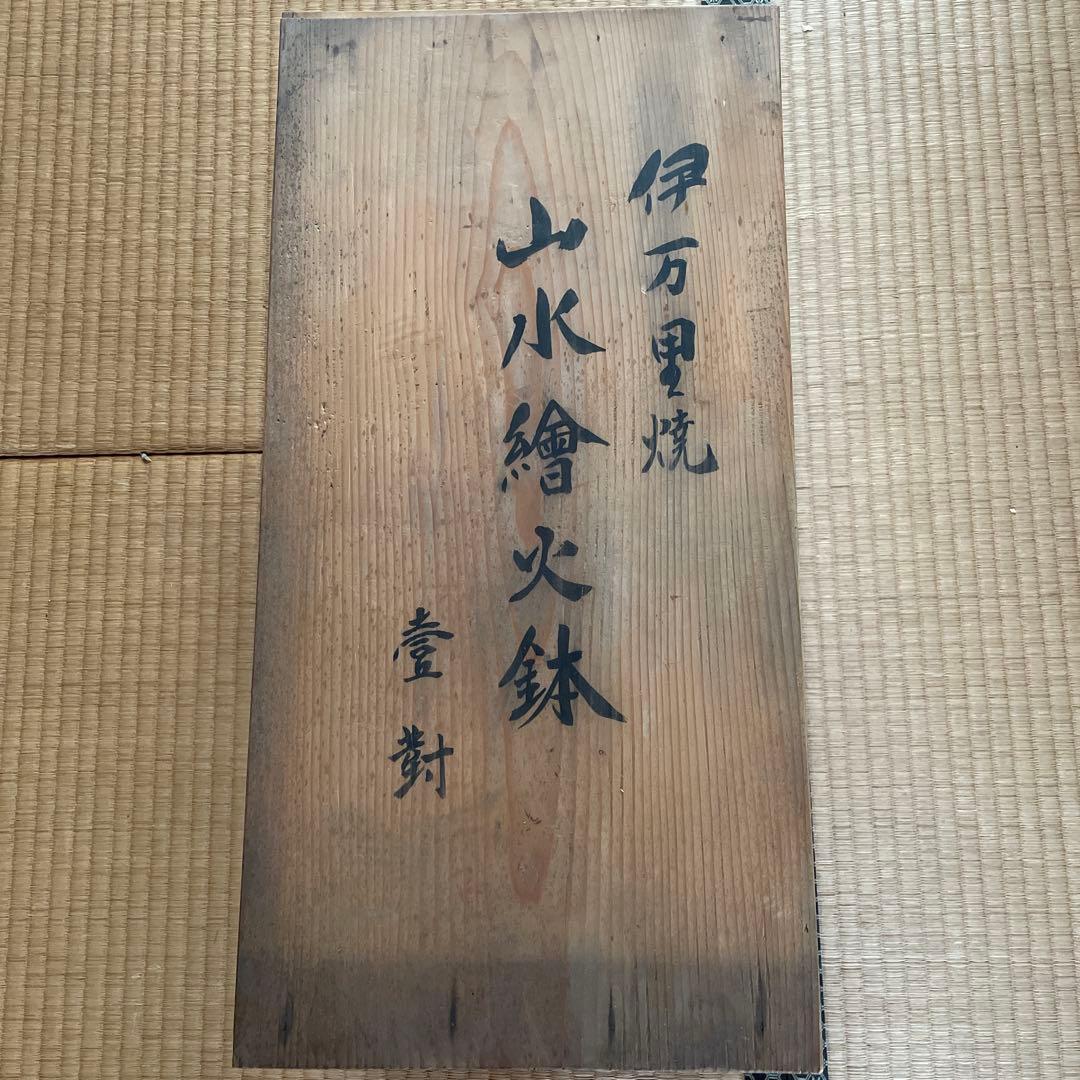 伊万里燒
山水繪火鉢
壹對